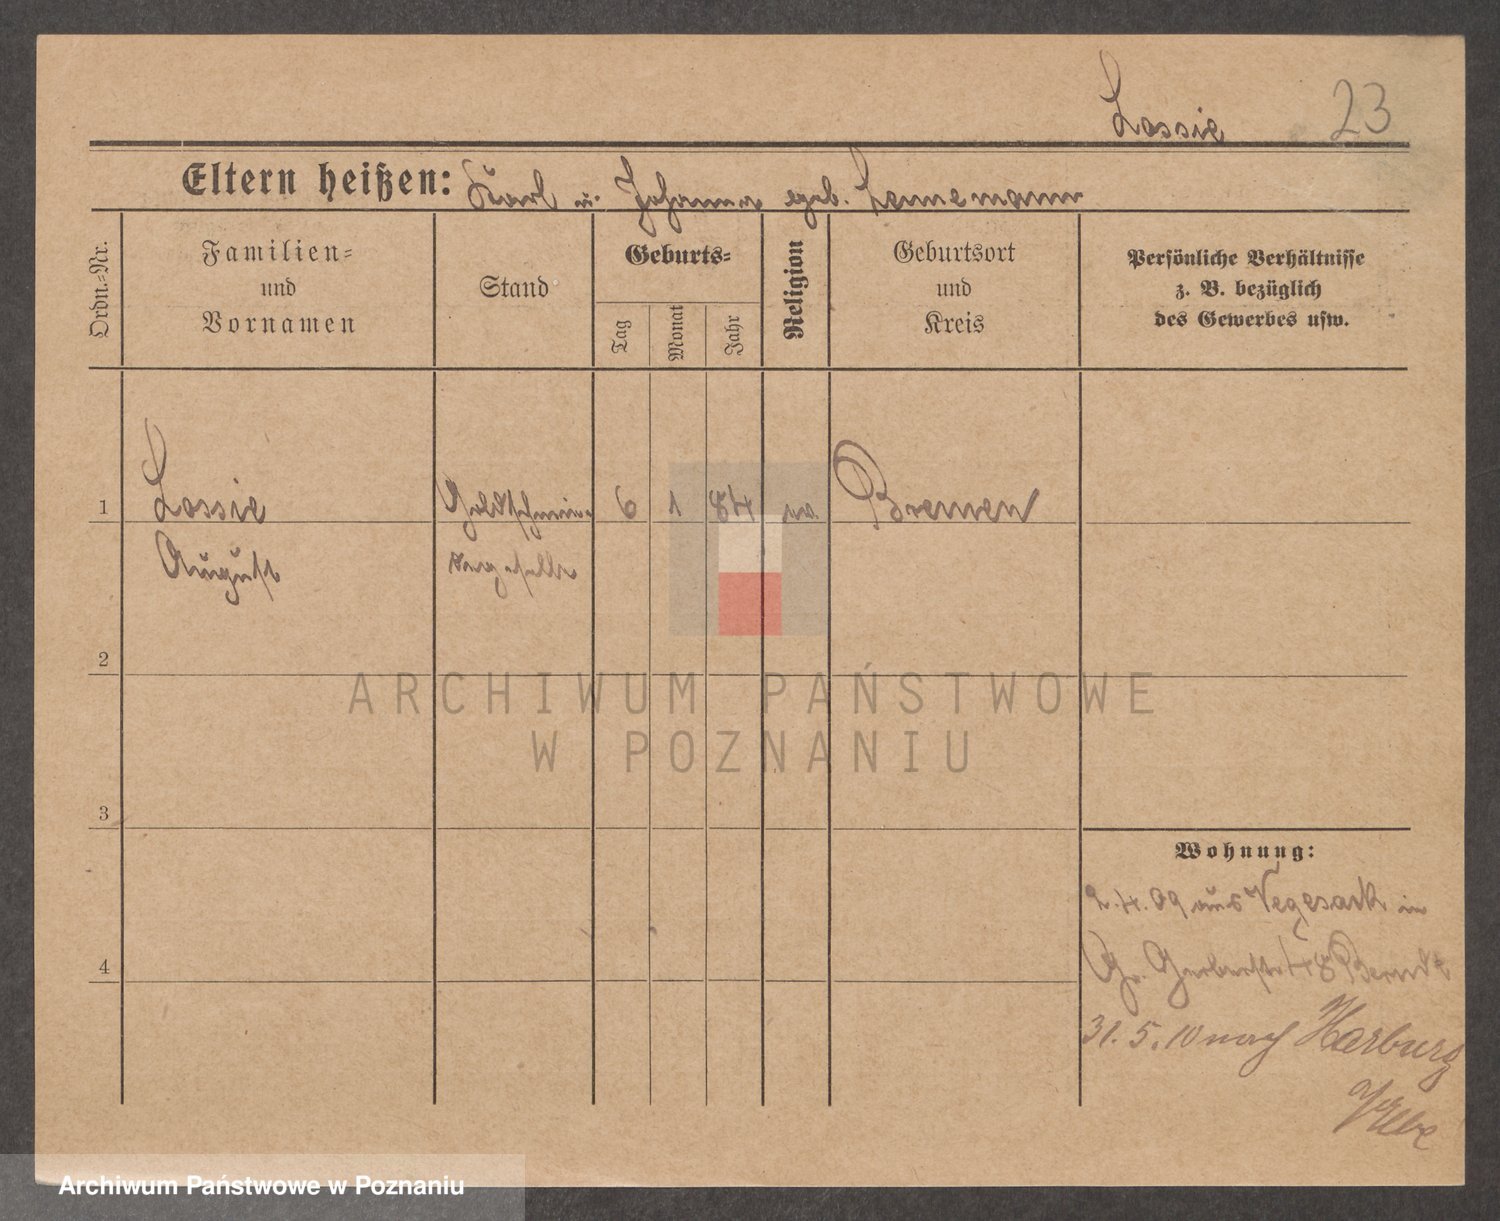 Lossie 23
Eltern heißen: Karl u. Johanna geb. Lennemann
Ordn.-Nr.
Familien-
und
Vornamen
Stand
Geburts-
Tag
Monat
Jahr
Religion
Geburtsort
und
Kreis
Persönliche Verhältnisse
z. B. bezüglich
des Gewerbes usw.
1 Lossie Goldschmie- 6 1 84 Bremen
August
2
3
4
ARCHIWUM PAŃSTWOWE
W POZNANIU
Wohnung:
2.4.09 aus Vegesack in
Gr. Gerberstr 48 Berndt
31.5.10 nach Harburg
Elbe
Archiwum Państwowe w Poznaniu